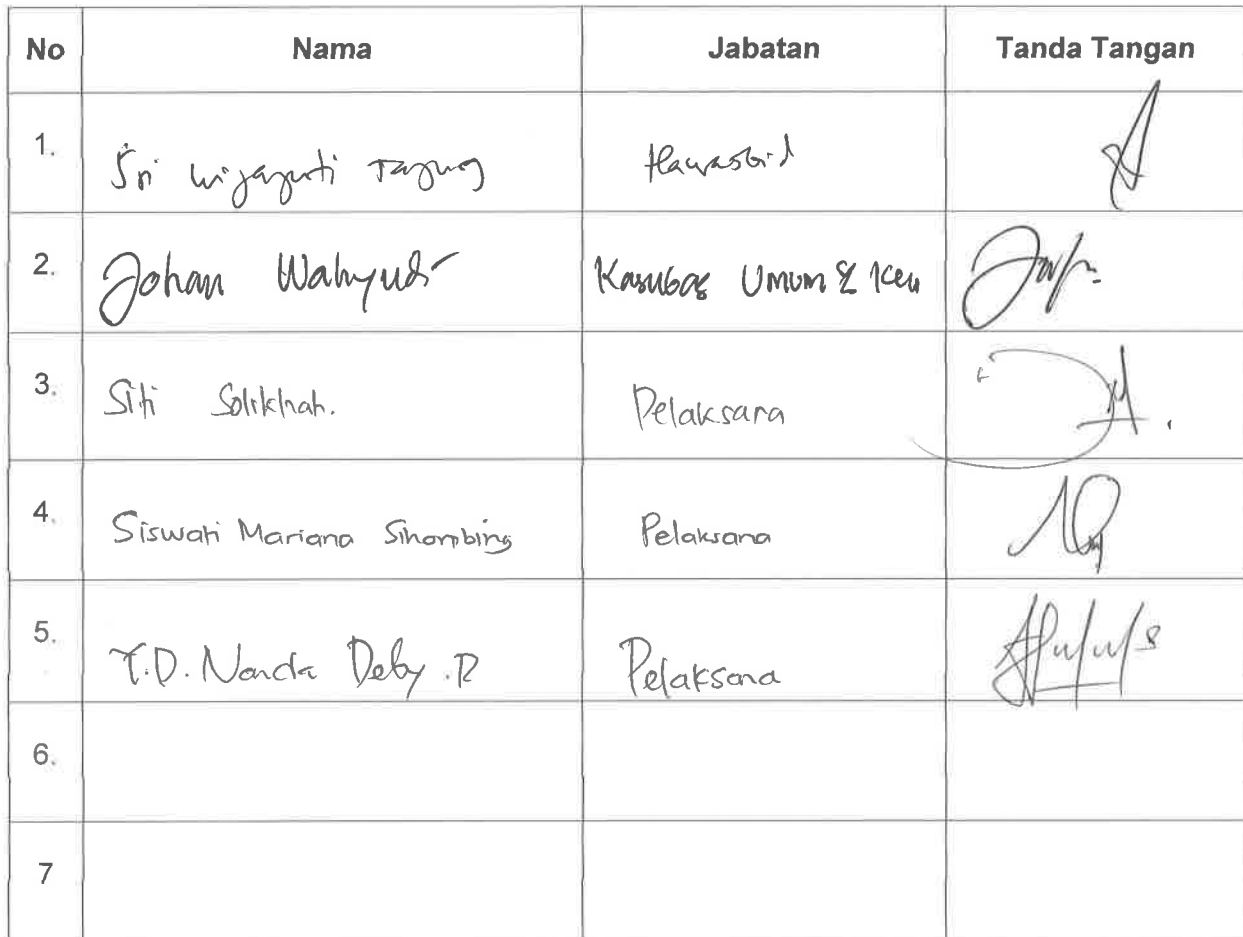 No Nama Jabatan Tanda Tangan
1. Sri Wijayanti Tanjung Hawasbid
2. Johan Wahyudi Kasubag Umum & Keu
3. Siti Solikhah. Pelaksana
4. Siswati Mariana Sihombing Pelaksana
5. T.D. Nanda Deby .R Pelaksana
6.
7